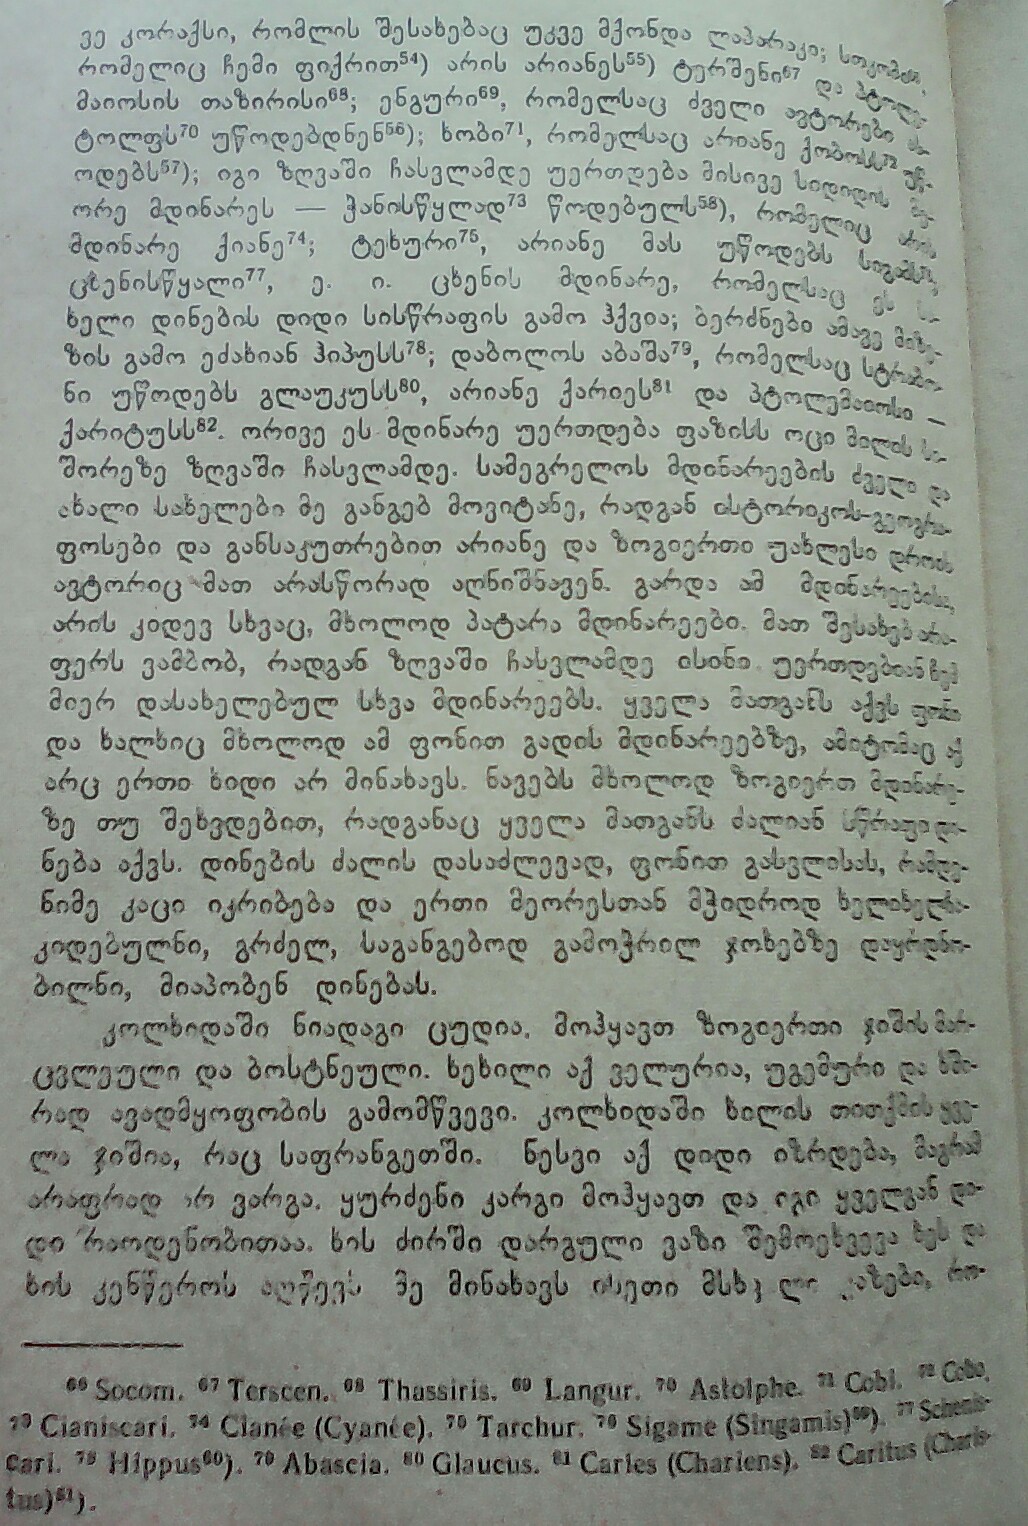 ვე კორაქსი, რომლის შესახებაც უკვე მქონდა ლაპარაკი; სოკომი,
რომელიც ჩემი ფიქრით⁵⁴) არის არიანეს⁵⁵) ტერშენი⁶⁷ და პტოლე-
მაიოსის თაზირისი⁶⁸; ენგური⁶⁹, რომელსაც ძველი ავტორები ას-
ტოლფს⁷⁰ უწოდებდნენ⁵⁶); ხობი⁷¹, რომელსაც არიანე ქობოსს⁷² უწ-
ოდებს⁵⁷); იგი ზღვაში ჩასვლამდე უერთდება მისივე სიდიდის მე-
ორე მდინარეს — ჭანისწყლად⁷³ წოდებულს⁵⁸), რომელიც არის
მდინარე ქიანე⁷⁴; ტეხური⁷⁵, არიანე მას უწოდებს სიგამს⁷⁶;
ცხენისწყალი⁷⁷, ე. ი. ცხენის მდინარე, რომელსაც ეს სა-
ხელი დინების დიდი სისწრაფის გამო ჰქვია; ბერძნები ამავე მიზე-
ზის გამო ეძახიან ჰიპუსს⁷⁸; დაბოლოს აბაშა⁷⁹, რომელსაც სტრაბო-
ნი უწოდებს გლაუკუსს⁸⁰, არიანე ქარიეს⁸¹ და პტოლემაიოსი —
ქარიტუსს⁸². ორივე ეს მდინარე უერთდება ფაზისს ოცი მილის სი-
შორეზე ზღვაში ჩასვლამდე. სამეგრელოს მდინარეების ძველი და
ახალი სახელები მე განგებ მოვიტანე, რადგან ისტორიკოს-გეოგრა-
ფოსები და განსაკუთრებით არიანე და ზოგიერთი უახლესი დროის
ავტორიც მათ არასწორად აღნიშნავენ. გარდა ამ მდინარეებისა,
არის კიდევ სხვაც, მხოლოდ პატარა მდინარეები. მათ შესახებ არა-
ფერს ვამბობ, რადგან ზღვაში ჩასვლამდე ისინი უერთდებიან ჩემ
მიერ დასახელებულ სხვა მდინარეებს. ყველა მათგანს აქვს ფონი
და ხალხიც მხოლოდ ამ ფონით გადის მდინარეებზე, ამიტომაც აქ
არც ერთი ხიდი არ მინახავს. ნავებს მხოლოდ ზოგიერთ მდინარე-
ზე თუ შეხვდებით, რადგანაც ყველა მათგანს ძალიან სწრაფი დი-
ნება აქვს. დინების ძალის დასაძლევად, ფონით გასვლისას, რამდე-
ნიმე კაცი იკრიბება და ერთი მეორესთან მჭიდროდ ხელიხელსა-
კიდებულნი, გრძელ, საგანგებოდ გამოჭრილ ჯოხებზე დაყრდნო-
ბილნი, მიაპობენ დინებას.
კოლხიდაში ნიადაგი ცუდია. მოჰყავთ ზოგიერთი ჯიშის მარ-
ცვლეული და ბოსტნეული. ხეხილი აქ ველურია, უგემური და ხში-
რად ავადმყოფობის გამომწვევი. კოლხიდაში ხილის თითქმის ყვე-
ლა ჯიშია, რაც საფრანგეთში. ნესვი აქ დიდი იზრდება, მაგრამ
არაფრად არ ვარგა. ყურძენი კარგი მოჰყავთ და იგი ყველგან დი-
დი რაოდენობითაა. ხის ძირში დარგული ვაზი შემოეხვევა ხეს და
ხის კენწეროს აღწევს მე მინახავს ისეთი მსხვილი ვაზები, რო-
⁶⁶ Socom. ⁶⁷ Terscen. ⁶⁸ Thassiris. ⁶⁹ Langur. ⁷⁰ Astolphe. ⁷¹ Cobi. ⁷² Cobo.
⁷³ Cianiscari. ⁷⁴ Cianée (Cyanée). ⁷⁵ Tarchur. ⁷⁶ Sigame (Singamis)⁵⁹). ⁷⁷ Schenis-
cari. ⁷⁸ Hippus⁶⁰). ⁷⁹ Abascia. ⁸⁰ Glaucus. ⁸¹ Caries (Chariens). ⁸² Caritus (Charis-
tus)⁶¹).